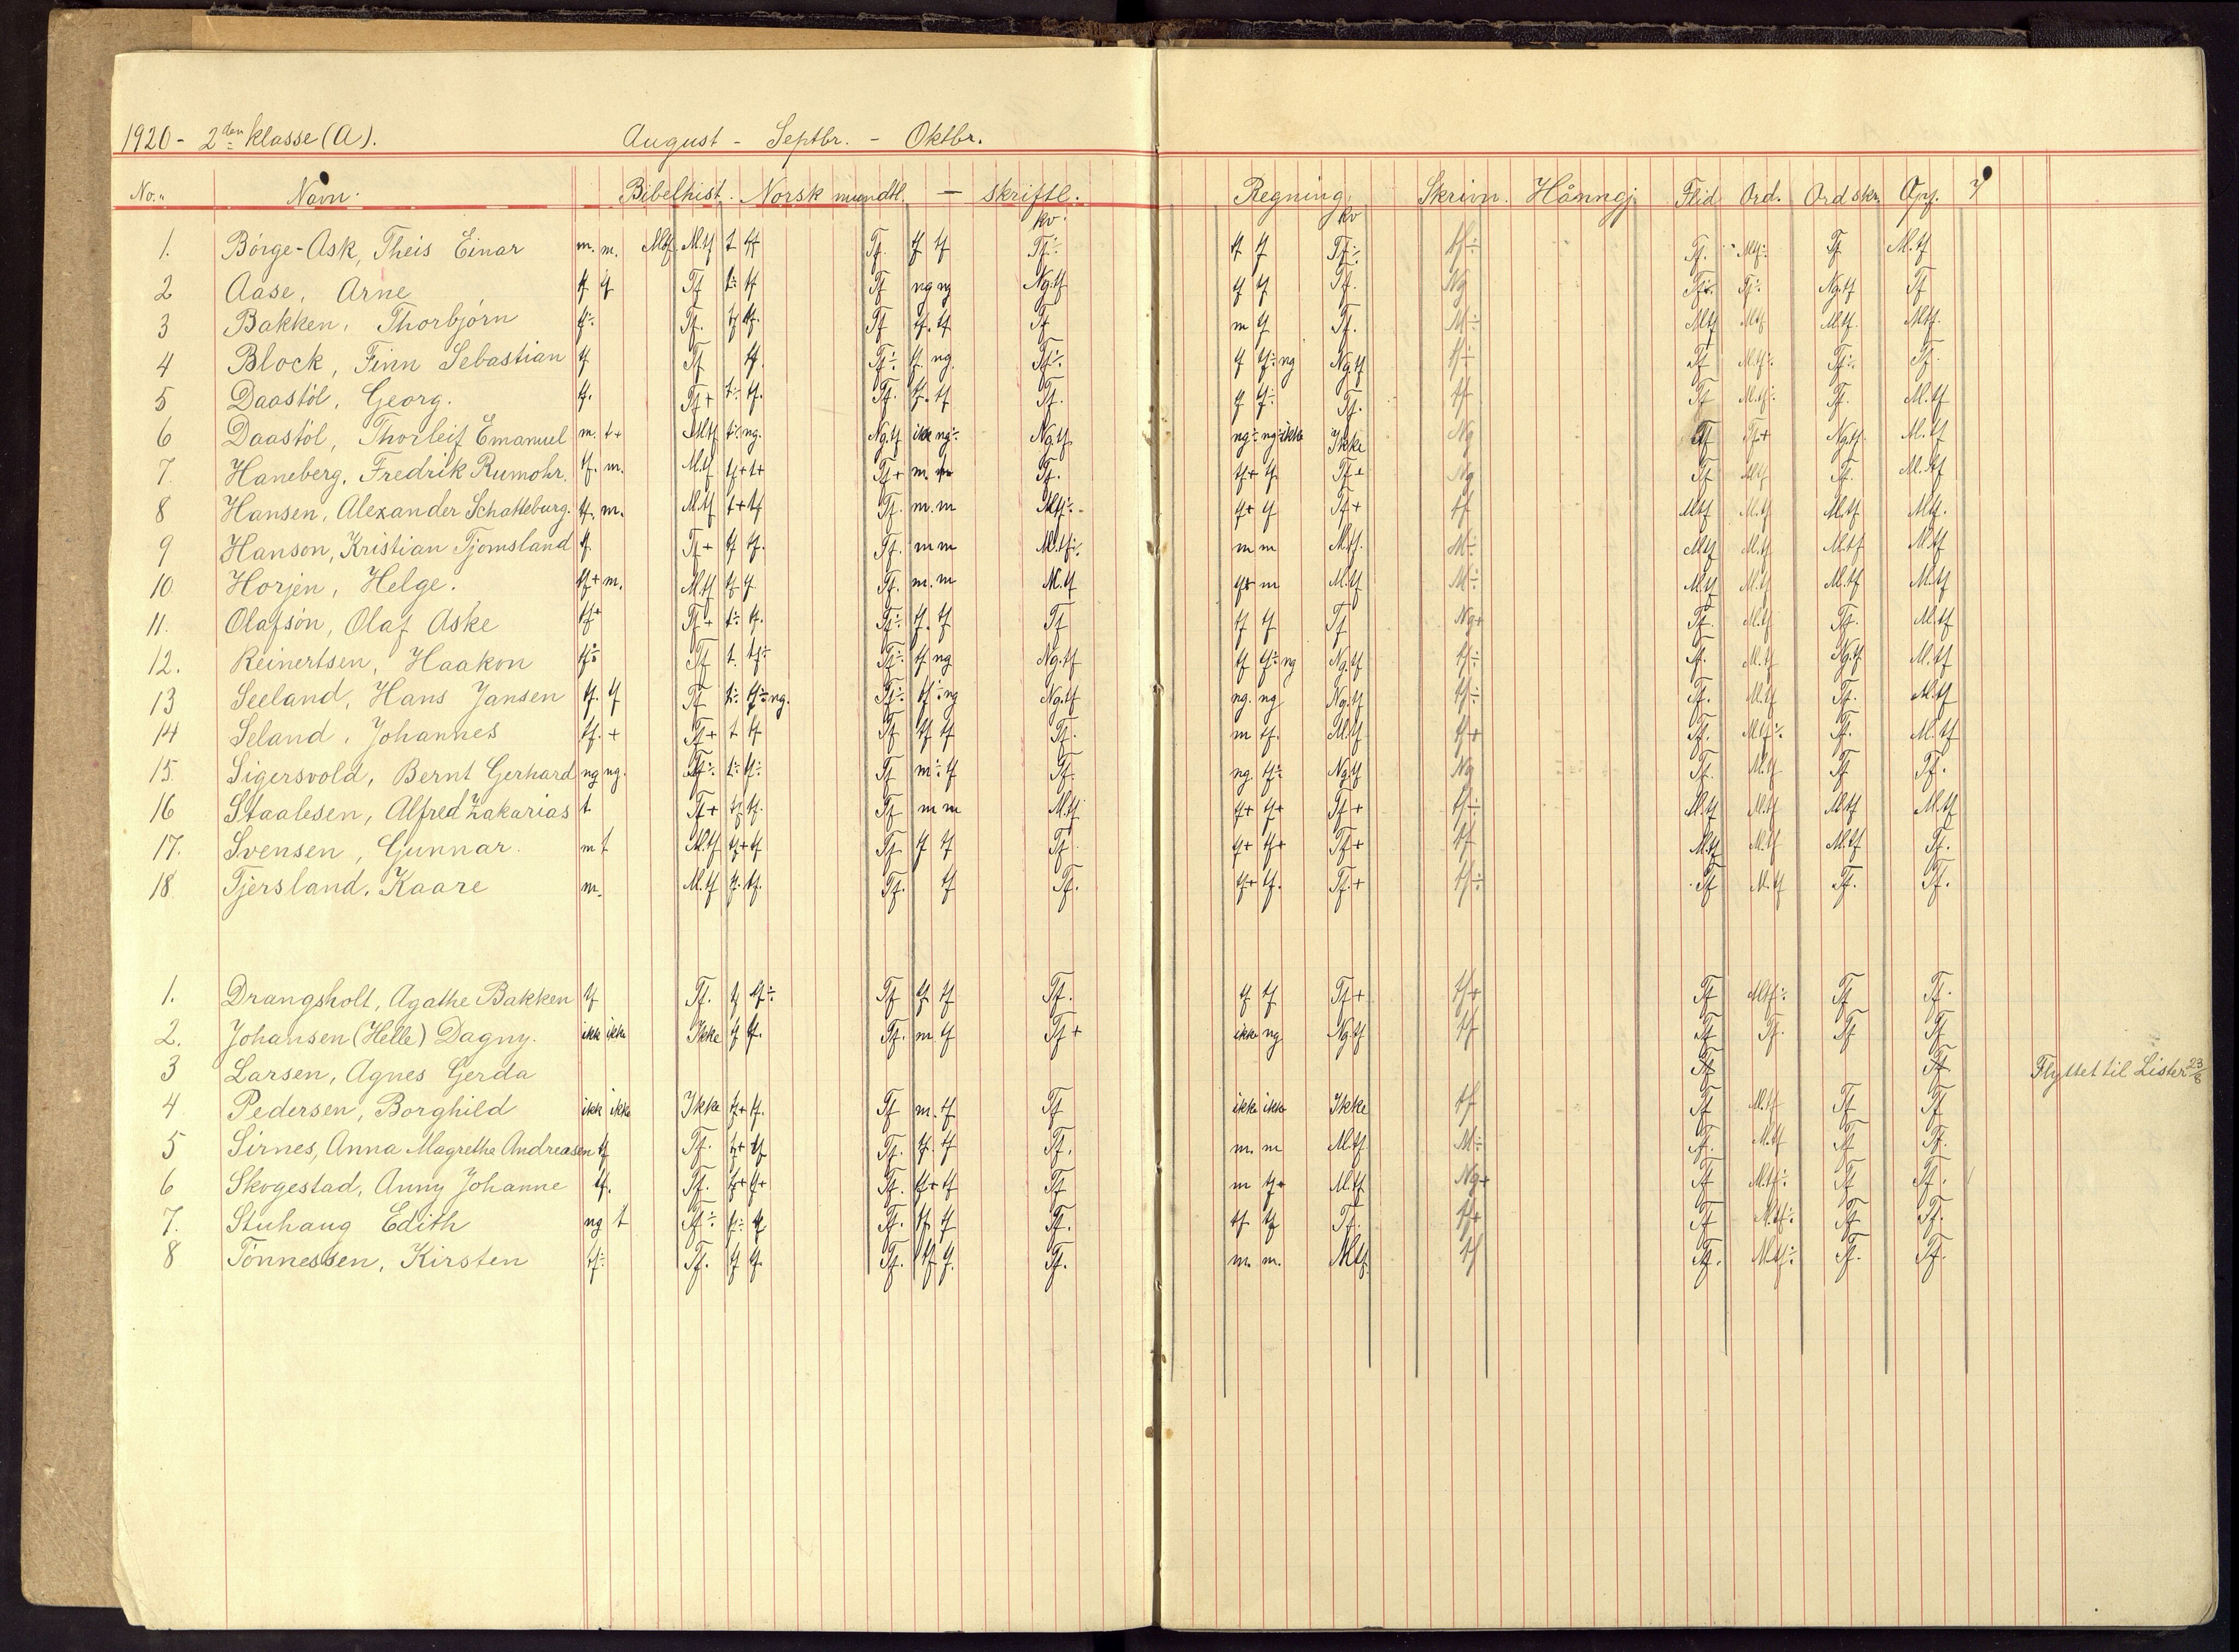 1920 - 2den klasse (A). August - Septbr. - Oktbr.
No. Navn. Bibelhist. Norsk mundtl. — skriftl. Regning Skrivn. Hånngj. Flid Ord. Ord skr. Opf.
kv. kv
1. Börge-Ask, Theis Einar m. m. Mtf. M.tf t tf Tf. tf tf Tf÷ tf tf Tf÷ tf÷ Tf. Mtf÷ Tf M.tf
2 Aase, Arne tf tf Tf t÷ tf Tf ng ng Ng.tf tf tf Tf. Ng Tf÷ Tf÷ Ng.tf Tf
3 Bakken, Thorbjörn tf÷ Tf. tf tf. Tf tf. tf Tf m tf Tf. M÷ Mtf Mtf M.tf. Mtf.
4 Block, Finn Sebastian tf Tf tf. Tf÷ tf. ng. Tf÷ tf tf÷ ng Ng.tf tf÷ Tf M.tf÷ Tf÷ Tf.
5 Daastöl, Georg. tf. Tf+ t÷ tf. Tf. tf. tf Tf. tf tf÷ Tf. tf Tf M.tf÷ Tf. M.tf
6 Daastöl, Thorleif Emanuel m. t+ Mtf t÷ ng. Ng.tf ikke ng÷ Ng.tf. ng÷ ng÷ ikke Ikke Ng Tf Tf+ Ng.tf. M.tf
7. Haneberg, Fredrik Rumohr. tf. m. M.tf tf+ t+ Tf+ m. Tf. tf+ tf Tf+ Ng Tf Mtf Tf. M.tf
8 Hansen, Alexander Schatteburg. tf. m. M.tf t+ tf Tf. m. m Mtf÷ tf+ tf Tf+ tf Mtf M.tf M.tf Mtf.
9 Hanson, Kristian Tjomsland tf Tf+ tf tf. Tf. m m M.tf÷ m m M.tf. M÷ Mtf M.tf M.tf M.tf
10. Horjen, Helge. tf+ m. M.tf tf tf. Tf. m. m M.tf tf+ m M.tf M÷ M.tf M.tf M.tf M.tf
11. Olafsön, Olaf Aske tf+ Tf+ t÷ tf. Tf÷ tf. tf Tf tf tf Tf Ng+ Tf. M.tf Tf. M.tf
12. Reinertsen, Haakon tf÷ Tf t. tf÷ Tf÷ tf ng Ng.tf tf tf÷ ng Ng.tf tf÷ Tf. M.tf Ng.tf. M.tf
13 Seeland, Hans Jansen tf. tf Tf t÷ tf÷ ng. Tf÷ tf÷ ng Ng.tf ng. ng Ng.tf tf÷ Tf. M.tf Tf. M.tf
14 Seland, Johannes tf. + Tf+ t tf Tf tf tf Tf. m tf. M.tf tf+ Tf. Mtf÷ Tf. M.tf
15. Sigersvold, Bernt Gerhard ng ng. Tf÷ t÷ tf÷ Tf m÷ tf Tf. ng. tf÷ Ng.tf Ng Tf. M.tf Tf Tf.
16 Staalesen, Alfred Zakarias t Tf+ tf tf. Tf m m M.tf. tf+ tf+ Tf+ tf÷ M.tf M.tf M.tf M.tf
17. Svensen, Gunnar. m t M.tf tf+ tf Tf tf tf Tf. tf+ tf+ Tf+ tf M.tf M.tf M.tf Tf.
18. Tjersland, Kaare m. M.tf tf. tf. Tf. tf Tf. tf+ tf. Tf.+ tf÷ Tf M.tf Tf. Tf.
1. Drangsholt, Agathe Bakken tf Tf. tf tf÷ Tf tf tf Tf. tf tf Tf+ tf+ Tf Mtf÷ Tf Tf.
2. Johansen (Helle) Dagny. ikk ikke Ikke tf tf. Tf. m. tf Tf+ ikke ng Ng.tf tf Tf Tf. Tf Tf
3 Larsen, Agnes Gerda Tf Tf Flyttet til Lister 23/8
4 Pedersen, Borghild ikk ikke Ikke tf+ tf. Tf m. tf Tf ikke ikke Ikke tf Tf M.tf Tf Tf
5 Sirnes, Anna Magrethe Andreasen tf Tf. tf+ tf Tf. tf. tf Tf. m. m M.tf M÷ Tf. M.tf Tf Tf.
6 Skogestad, Anny Johanne tf. Tf. tf+ tf+ Tf. tf+ tf Tf m tf+ M.tf Ng+ Tf M.tf÷ Tf Tf.
7. Stuhaug Edith ng t Tf÷ t÷ tf Tf. tf. tf Tf. tf tf Tf. tf+ Tf M.tf÷ Tf Tf.
8 Tönnessen, Kirsten tf÷ Tf. tf tf. Tf. tf. tf. Tf. m. m. Mtf. tf Tf. M.tf÷ Tf. Tf.